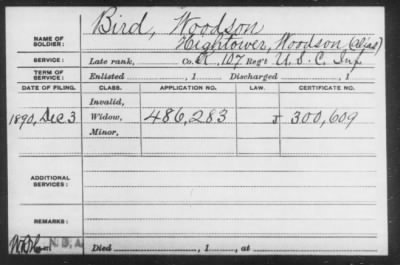 Bird, Woodson
NAME OF SOLDIER: Hightower, Woodson (alias)
SERVICE: Late rank, Co. A, 107 Reg't U.S.C. Inf.
TERM OF SERVICE: Enlisted , 1 Discharged , 1
DATE OF FILING. CLASS. APPLICATION NO. LAW. CERTIFICATE NO.
Invalid,
1890, Dec 3 Widow, 486,283 J 300,609
Minor,
ADDITIONAL SERVICES:
REMARKS:
N.D.A. Died , 1 , at